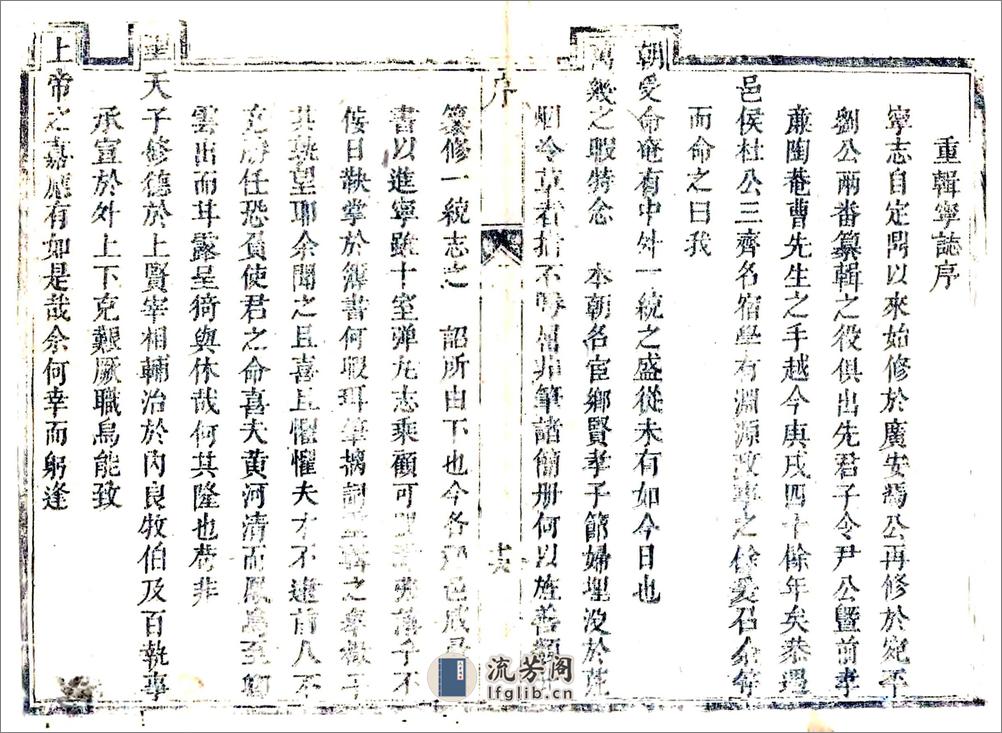 重輯寧誌序
寧志自定鼎以來始修於廣安馮公再修於宛平
劉公兩番纂輯之役俱出先君子令尹公暨前孝
廉陶菴曹先生之手越今庚戌四十餘年矣恭遇
邑侯杜公三齊名宿學有淵源政事之餘爰召余等
而命之曰我
朝受命奄有中外一統之盛從未有如今日也
萬幾之暇特念 本朝名宦鄉賢孝子節婦埋没於荒
烟冷草者指不勝屈非筆諸簡册何以旌善類
序
纂修一統志之 詔所由下也今各 邑咸
書以進寧雖十室弹丸志乘顧可 子不
佞日鞅掌於簿書何暇珥筆摛詞 之舉微子
其孰望耶余聞之且喜且懼懼夫才不逮前人不
克勝任恐負使君之命喜夫黄河清而鳳鳥至卿
雲出而甘露呈猗與休哉何其隆也苟非
聖天子修德於上賢宰相輔治於内良牧伯及百執事
承宣於外上下克艱厥職烏能致
上帝之嘉應有如是哉余何幸而躬逢
流芳阁
lfglib.cn